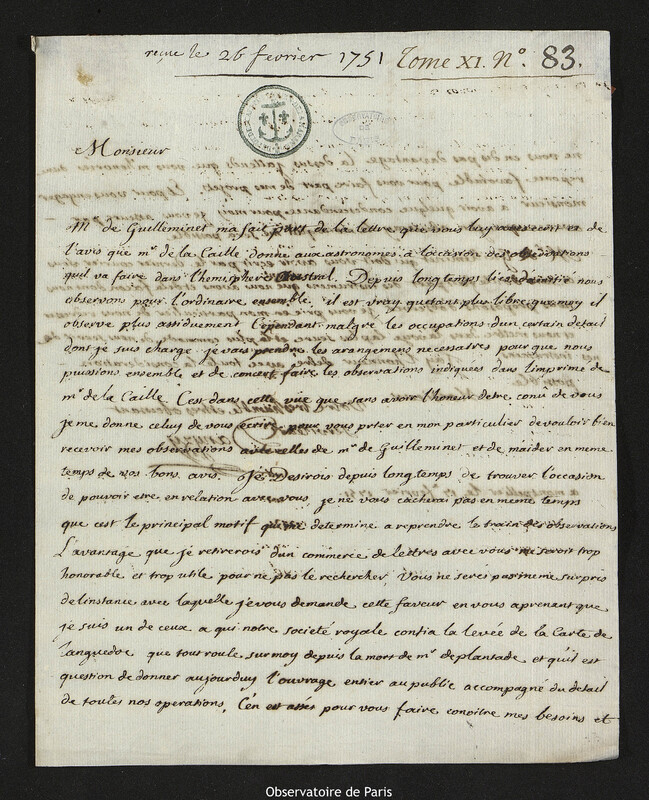 reçue le 26 fevrier 1751 Tome XI. N° 83.
Monsieur
Mr de Guilleminet ma fait part de la lettre que vous luy avés écrit et de
l'avis que mr de la Caille donne aux astronomes à l'occasion des observations
qu'il va faire dans l'hemisphere Austral. Depuis longtemps nous
observons pour l'ordinaire ensemble, il est vray qu'etant plus libre que moy il
observe plus assiduement. Cependant malgré les occupations d'un certain detail
dont je suis chargé je vais prendre les arangemens necessaires pour que nous
puissions ensemble et de concert faire les observations indiquées dans l'imprimé de
mr de la Caille. C'est dans cette vüe que sans avoir l'honneur detre conû de vous
je me donne celuy de vous écrire pour vous prier en mon particulier de vouloir bien
recevoir mes observations avec celles de mr de Guilleminet et de maider en meme
temps de vos bons avis. Je desirois depuis longtemps de trouver l'occasion
de pouvoir etre en relation avec vous je ne vous cacherai pas en meme temps
que cest le principal motif qui me determine a reprendre le train des observations
L'avantage que je retirerois d'un commerce de lettres avec vous me seroit trop
honorable et trop utile pour ne pas le rechercher. Vous ne serés pas meme surpris
de linstance avec laquelle je vous demande cette faveur en vous aprenant que
je suis un de ceux a qui notre societé royale confia la Levée de la Carte de
Languedoc que tout roule sur moy depuis la mort de mr de plantade et qu'il est
question de donner aujourduy l'ouvrage entier au public accompagné du detail
de toutes nos operations. C'en est assés pour vous faire conoitre mes besoins et
Observatoire de Paris